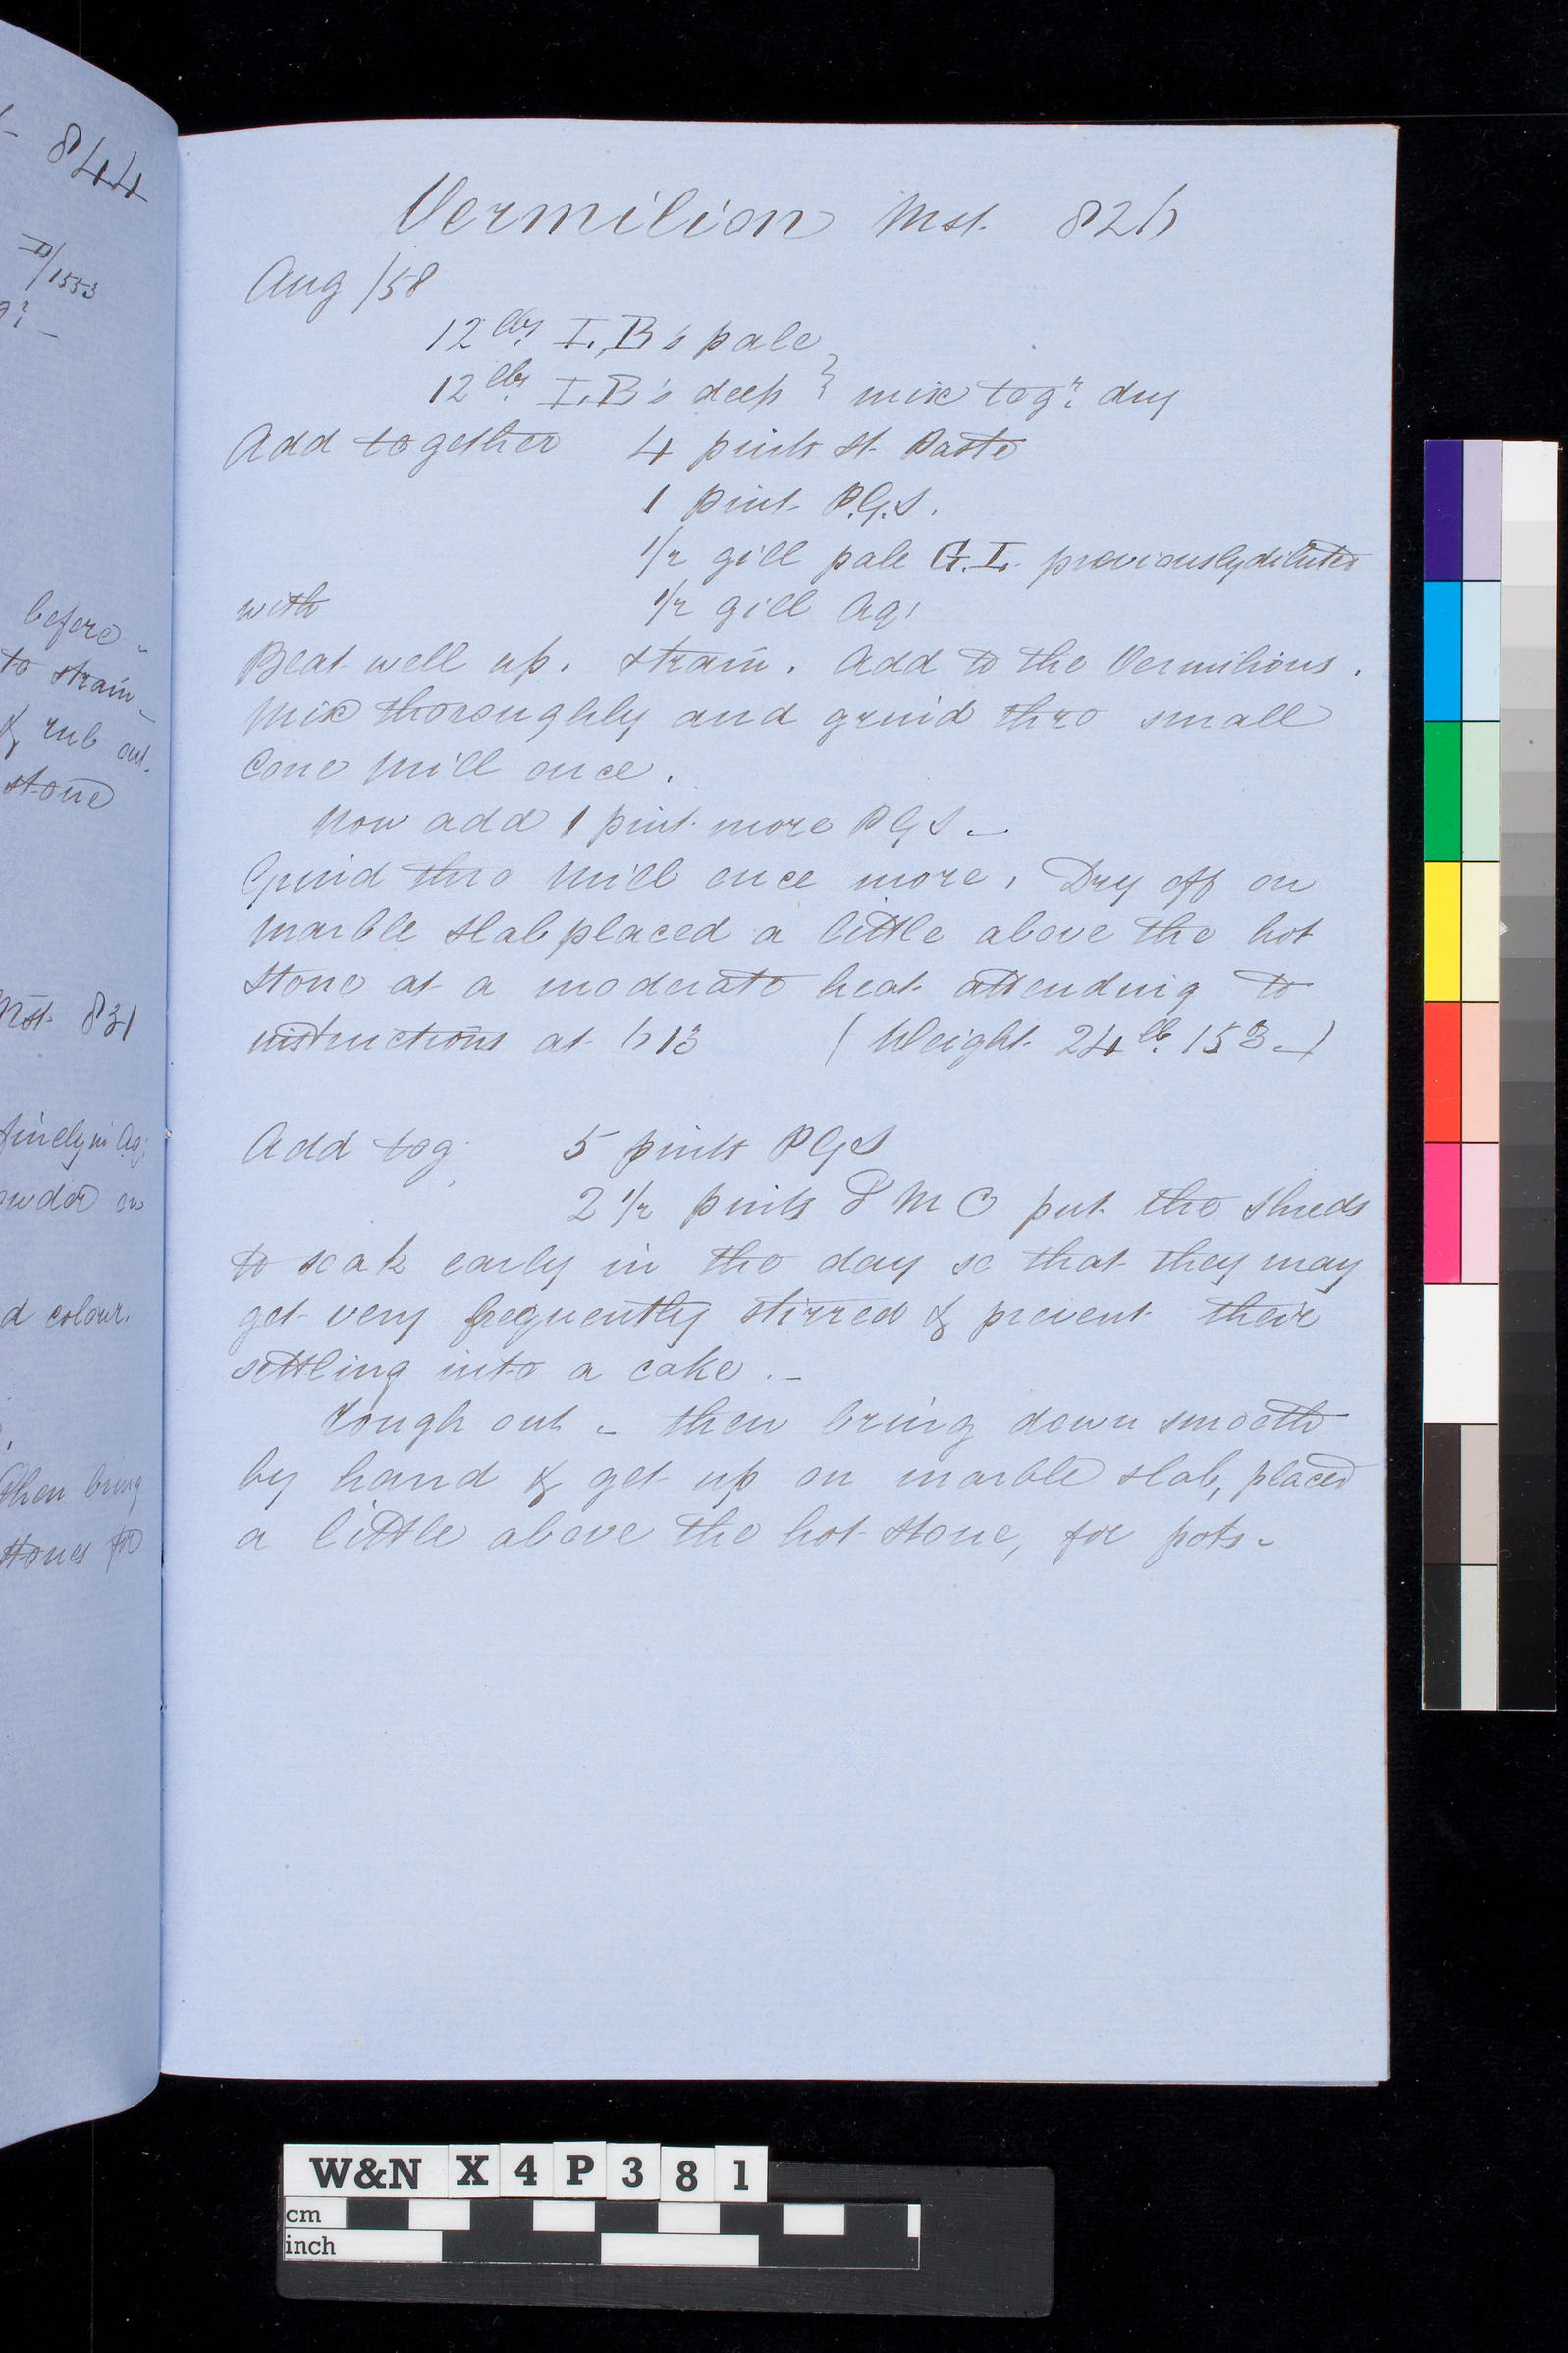 - 844
D/1553
before -
to strain -
& rub out.
stone
Mst. 831
finely in Aq:
d colour.
then bring
stones for
Vermilion Mst. 826
Aug /58
12 lbs I.B's pale
12 lbs I.B's deep } mix togr. dry
Add together 4 pints St. Paste
1 pint P.G.S.
1/2 gill pale G.I. previously diluted
with 1/2 gill Aq:
Beat well up. strain. Add to the Vermilions.
Mix thoroughly and grind thro small
Cone Mill once.
Now add 1 pint more PGS -
Grind thro Mill once more. Dry off on
Marble Slab placed a little above the hot
Stone at a moderate heat attending to
instructions at 613 (Weight 24 lb. 15 ℥ -)
Add tog. 5 pints PGS
2 1/2 pints & M C put the shreds
to soak early in the day so that they may
get very frequently stirred & prevent their
settling into a cake. -
Rough out - then bring down smooth
by hand & get up on marble slab, placed
a little above the hot stone, for pots -
W&N X4P381
cm
inch